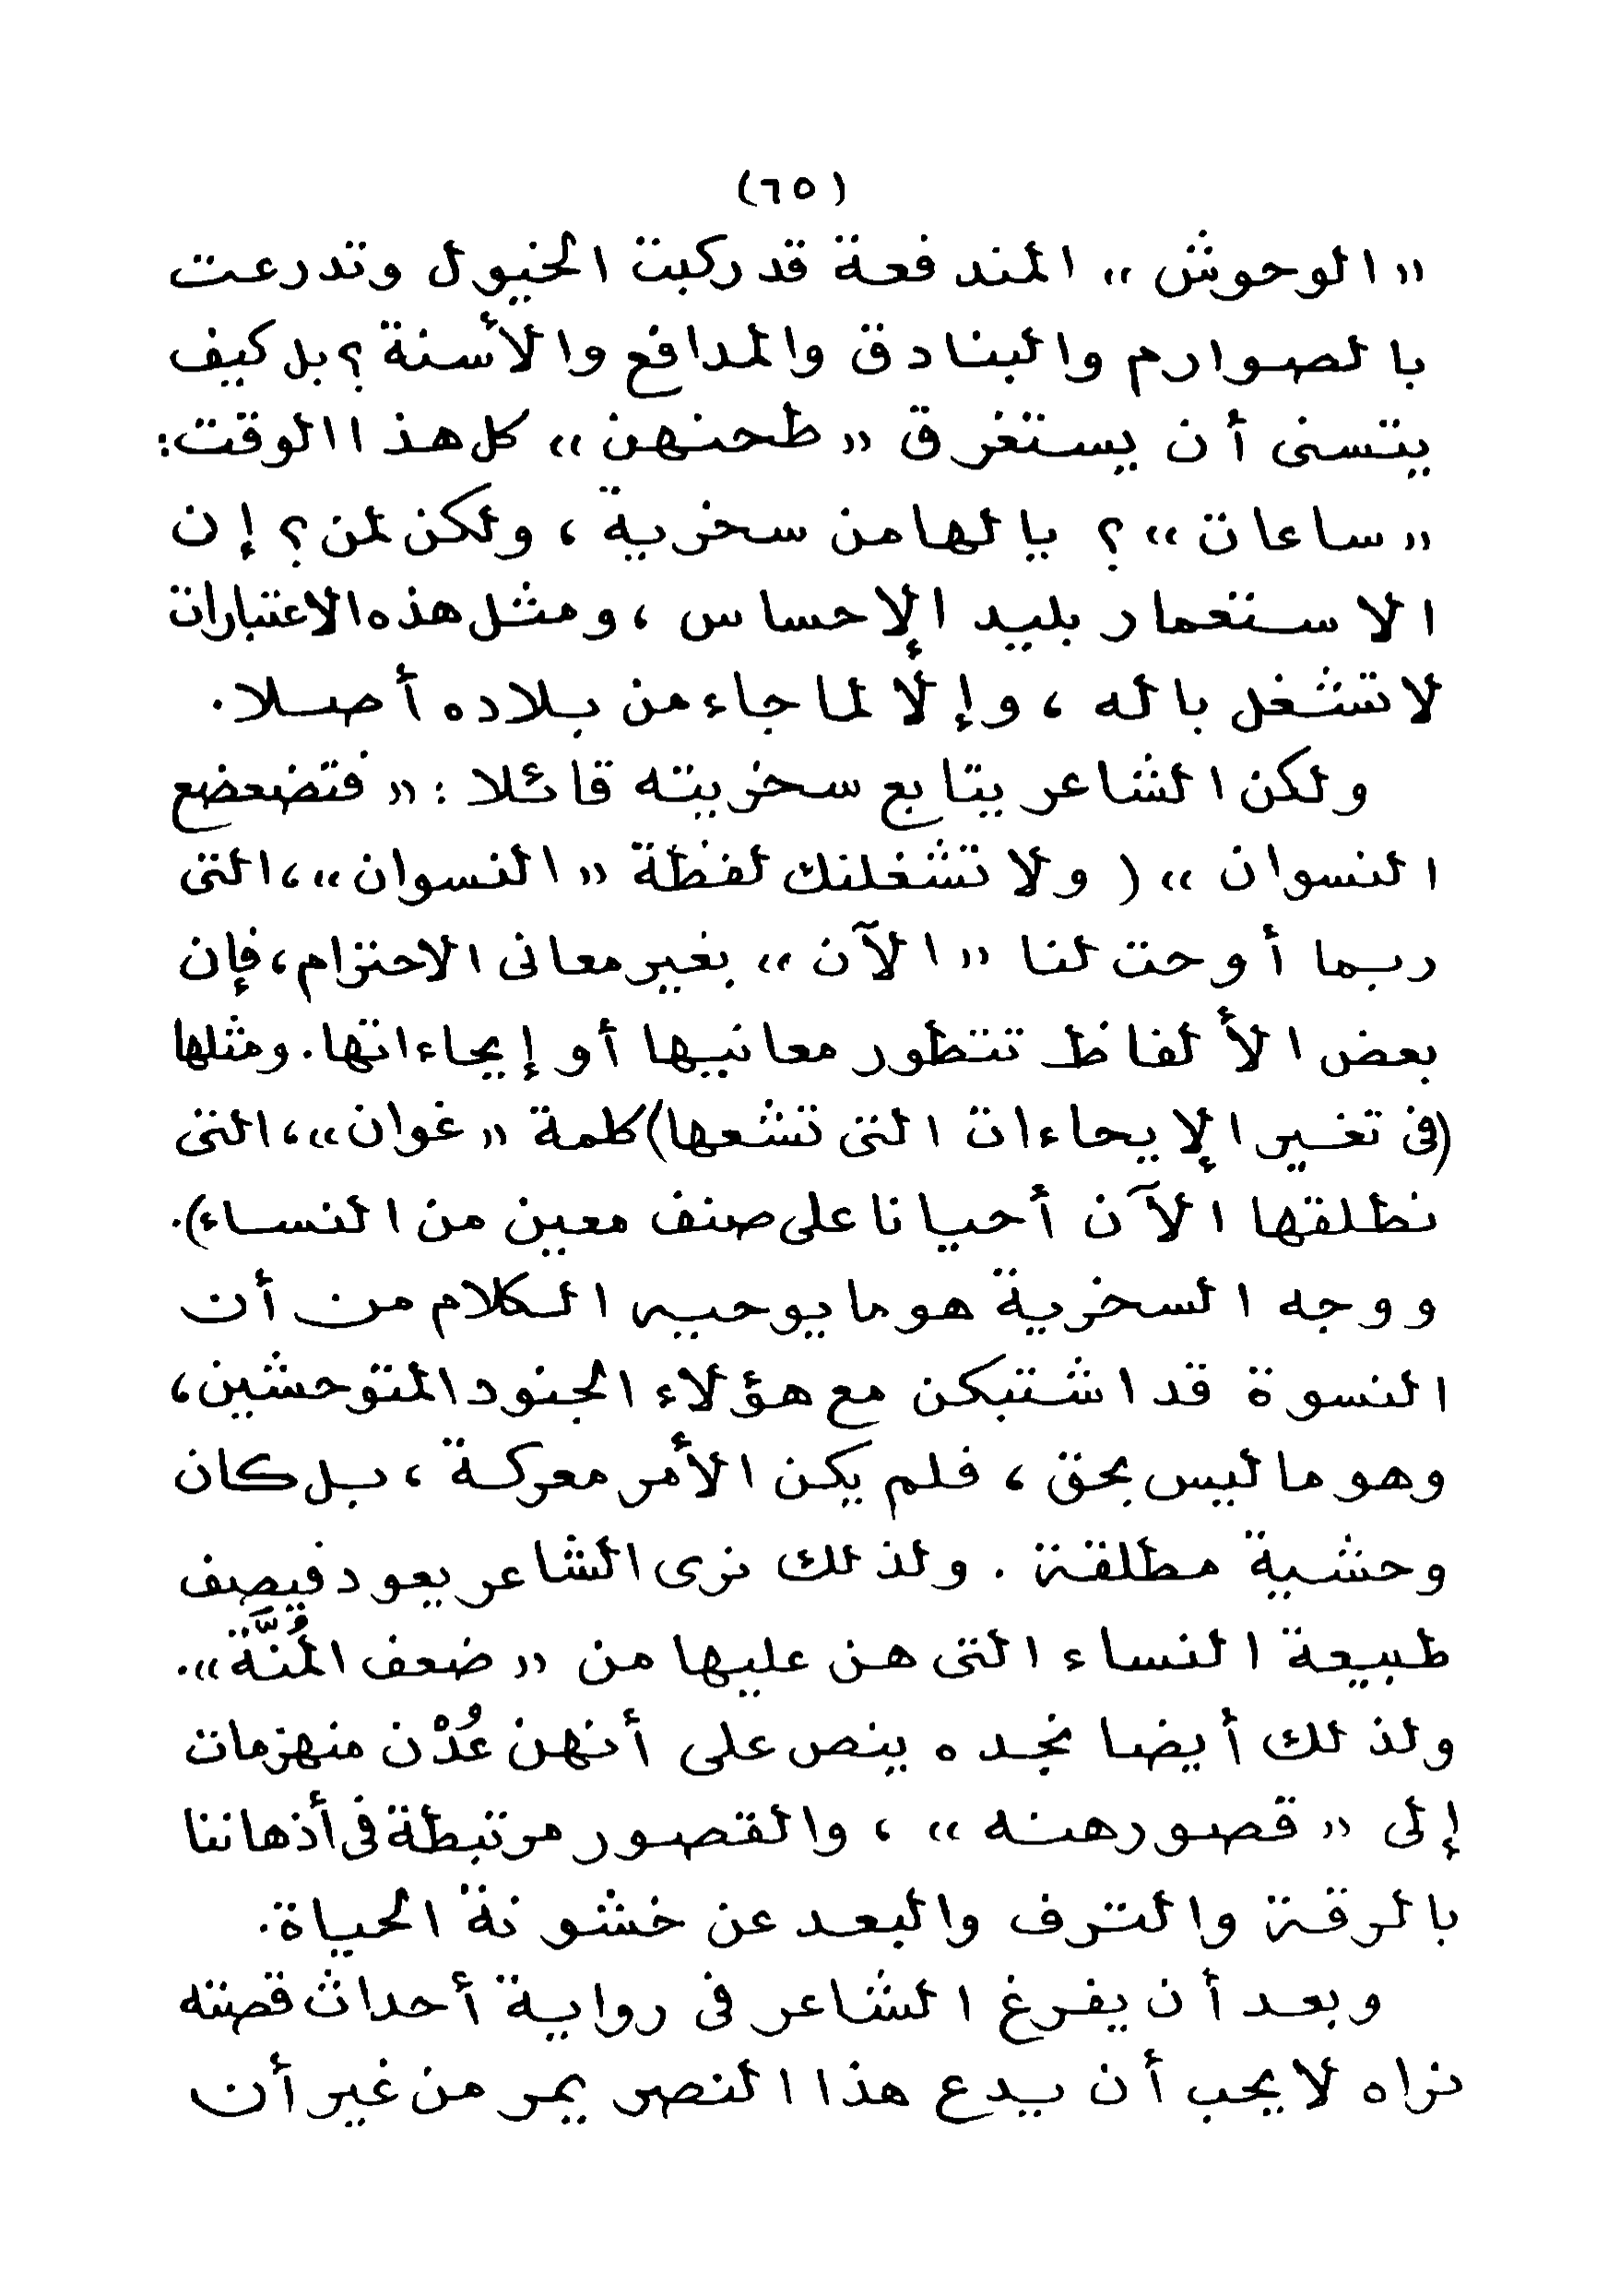 (٦٥)
«الوحوش» المندفعة قد ركبت الخيول وتدرعت
بالصوارم والبنادق والمدافع والأسنة؟ بل كيف
يتسنى أن يستغرق «طحنهن» كل هذا الوقت:
«ساعات»؟ يا لها من سخرية، ولكن لمن؟ إن
الاستعمار بليد الإحساس، ومثل هذه الاعتبارات
لا تشغل باله، وإلا لما جاء من بلاده أصلا.
ولكن الشاعر يتابع سخريته قائلا: «فتضعضع
النسوان» (ولا تشغلنك لفظة «النسوان»، التى
ربما أوحت لنا «الآن» بغير معانى الاحترام، فإن
بعض الألفاظ تتطور معانيها أو إيحاءاتها. ومثلها
(فى تغير الإيحاءات التى تشعها) كلمة «غوان»، التى
نطلقها الآن أحيانا على صنف معين من النساء).
ووجه السخرية هو ما يوحيه الكلام من أن
النسوة قد اشتبكن مع هؤلاء الجنود المتوحشين،
وهو ما ليس بحق، فلم يكن الأمر معركة، بل كان
وحشية مطلقة. ولذلك نرى الشاعر يعود فيصف
طبيعة النساء التى هن عليها من «ضعف المُنَّة».
ولذلك أيضا نجده ينص على أنهن عُدْن منهزمات
إلى «قصورهنه»، والقصور مرتبطة فى أذهاننا
بالرقة والترف والبعد عن خشونة الحياة.
وبعد أن يفرغ الشاعر فى رواية أحداث قصته
نراه لا يحب أن يدع هذا النصر يمر من غير أن